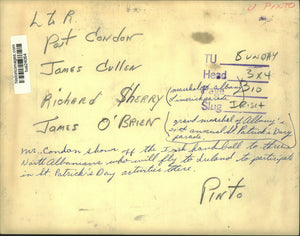 U PINTO
L to R.
Pat Condon
James Cullen
Richard Sherry
James O'Brien
(grand marshal of Albany's
annual St. Patrick's Day
parade)
Mr. Condon shows off the Irish handball to three
North Albanians who will fly to Ireland to participate
in St. Patrick's Day activities there.
Pinto
TU SUNDAY
Head 3x4
310
Slug IRISH